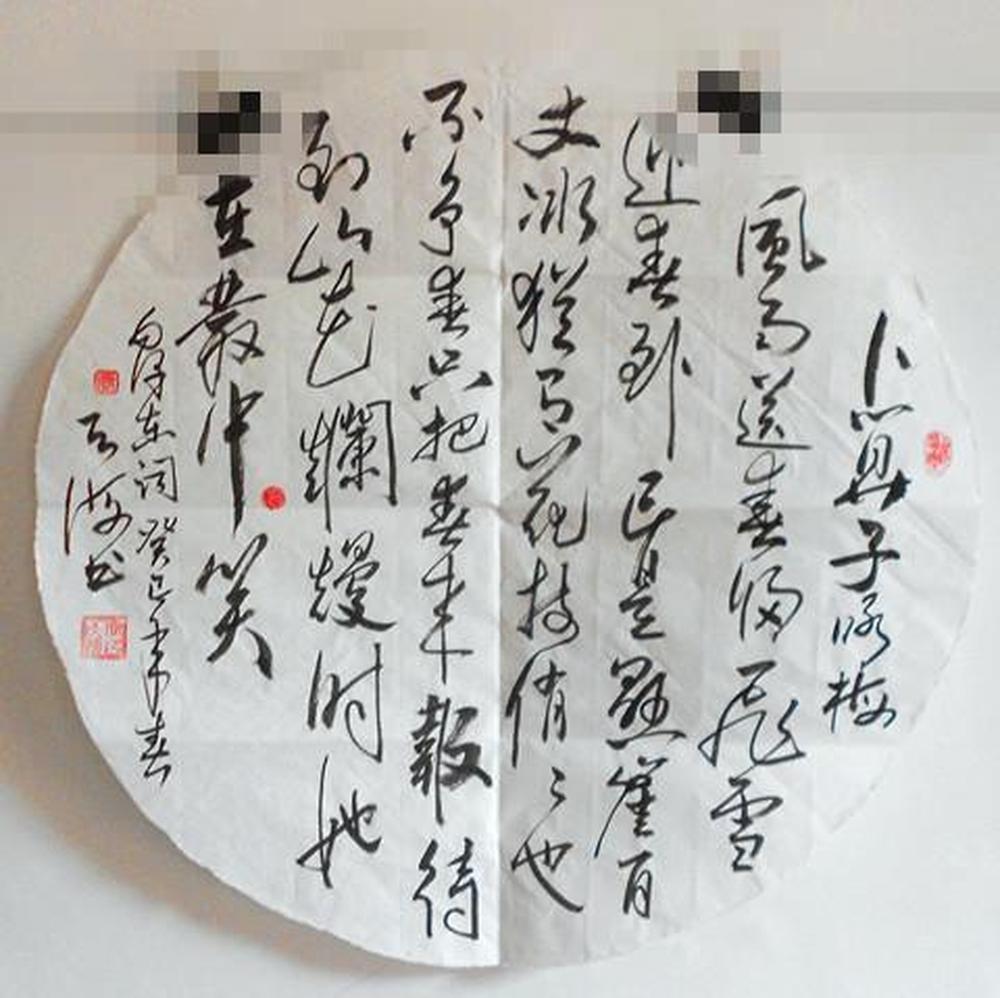 卜算子咏梅
風雨送春归飛雪
迎春到已是懸崖百
丈冰猶有花枝俏〻也
不争春只把春来報待
到山花爛熳时她
在叢中笑
泽东词癸巳年春
海书